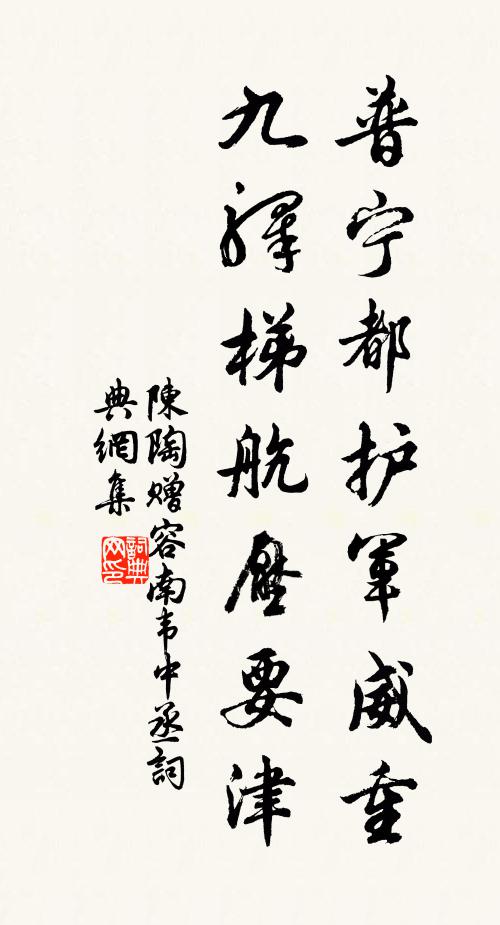 普宁都护军威重
九驿梯航压要津
陳陶赠容南韦中丞詞
典網集
詞典
网印